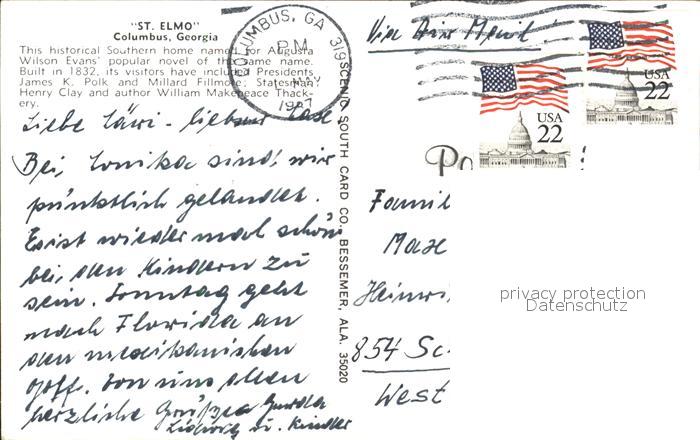 "ST. ELMO"
Columbus, Georgia
This historical Southern home named for Augusta
Wilson Evans' popular novel of the same name.
Built in 1832, its visitors have included Presidents
James K. Polk and Millard Fillmore; Statesman
Henry Clay and author William Makepeace Thack-
ery.
COLUMBUS, GA 319
PM
MAY
1987
SCENIC SOUTH CARD CO. BESSEMER, ALA. 35020
Liebe
Bei sind wir
pünktlich gelandet.
Es ist wieder mal schön
bei den Kindern zu
sein. Sonntag geht
nach Florida an
den mexikanischen
Golf. Von uns allen
herzliche Grüße
u. Kinder
Via Air Mail
USA
22
USA
22
Po
Famil
Maxe
Heinri
854 Sc
West
privacy protection
Datenschutz